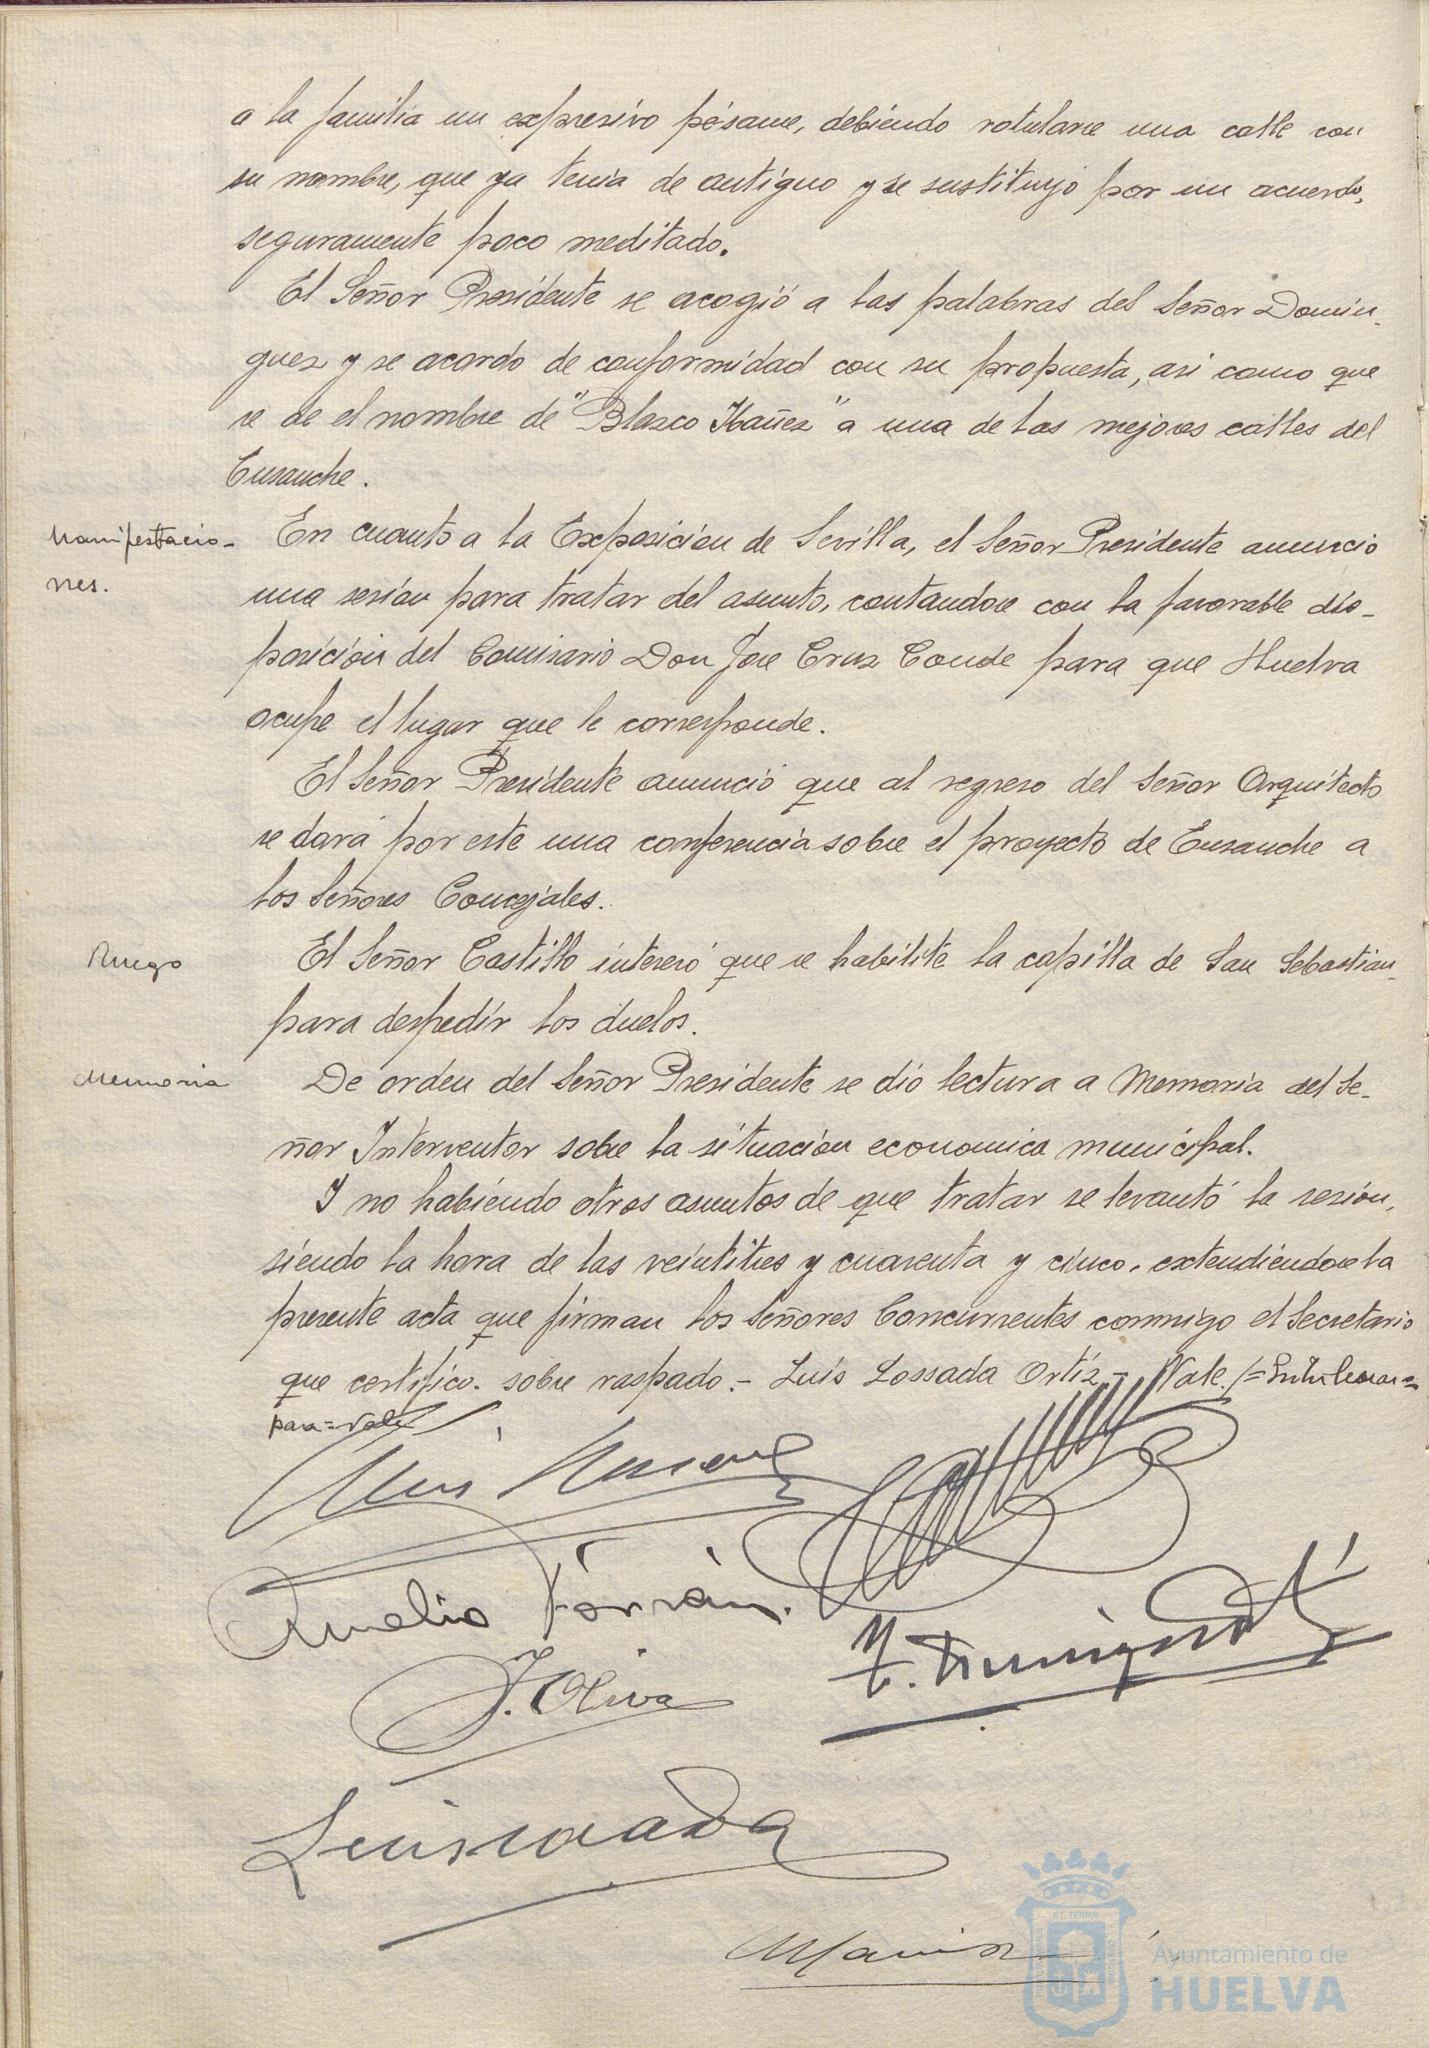 a la familia un expresivo pésame, debiendo rotularse una calle con
su nombre, que ya tenia de antiguo y se sustituyó por un acuerdo,
seguramente poco meditado.
El Señor Presidente se acogió a las palabras del Señor Domin-
guez y se acordo de conformidad con su propuesta, asi como que
se de el nombre de "Blasco Ibañez" a una de las mejores calles del
Ensanche.
Manifestacio-
nes.
En cuanto a la Exposición de Sevilla, el Señor Presidente anuncio
una sesión para tratar del asunto, contandose con la favorable dis-
posición del Comisario Don Jose Cruz Conde para que Huelva
ocupe el lugar que le corresponde.
El Señor Presidente anunció que al regreso del Señor Arquitecto
se dará por este una conferencia sobre el proyecto de Ensanche a
los Señores Concejales.
Ruego
El Señor Castillo intereró que se habilite la capilla de San Sebastian
para despedir los duelos.
Memoria
De orden del Señor Presidente se dió lectura a Memoria del Se-
ñor Interventor sobre la situación economica municipal.
Y no habiendo otros asuntos de que tratar se levantó la sesión,
siendo la hora de las veintitres y cuarenta y cinco, extendiendose la
presente acta que firman los Señores Concurrentes conmigo el Secretario
que certifico. sobre raspado.- Luis Lossada Ortiz.- Vale./=
para=Vale
Amelio Terrán.
J. Oliva
ET TERRÆ
Ayuntamiento de
HUELVA